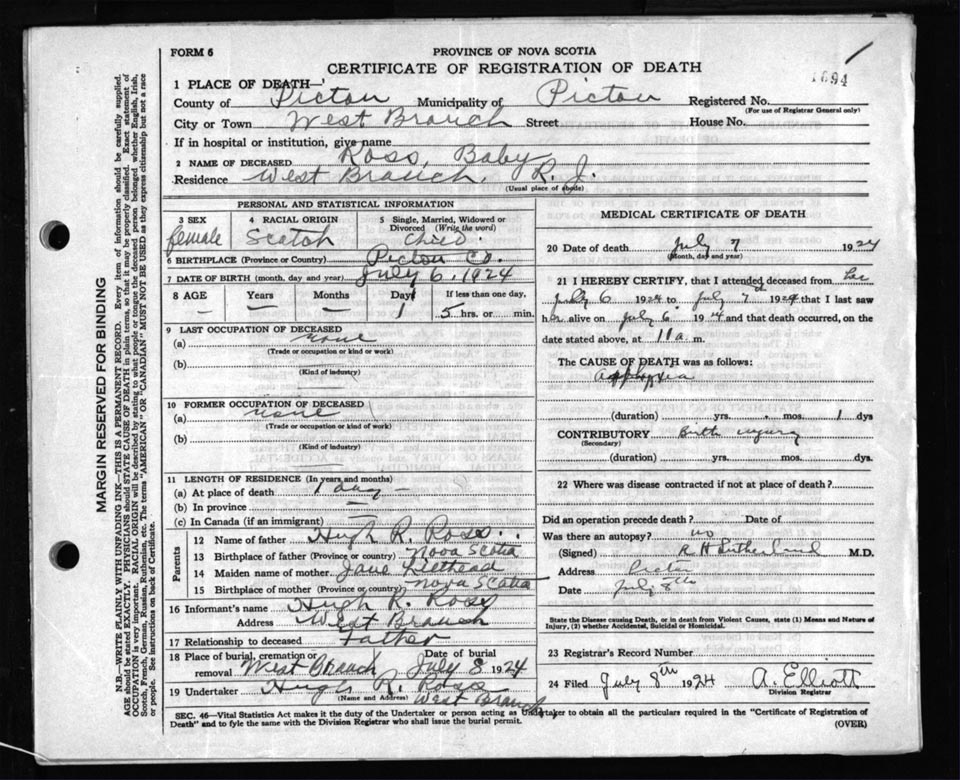 FORM 6
PROVINCE OF NOVA SCOTIA
CERTIFICATE OF REGISTRATION OF DEATH
1694
1 PLACE OF DEATH—
County of Pictou Municipality of Pictou Registered No.
(For use of Registrar General only)
City or Town West Branch Street House No.
If in hospital or institution, give name
2 NAME OF DECEASED Ross, Baby
Residence West Branch, R. J.
(Usual place of abode)
PERSONAL AND STATISTICAL INFORMATION
3 SEX female
4 RACIAL ORIGIN Scotch
5 Single, Married, Widowed or Divorced (Write the word)
6 BIRTHPLACE (Province or Country) Pictou Co.
7 DATE OF BIRTH (month, day and year) July 6, 1924
8 AGE Years — Months — Days 1 If less than one day, 5 hrs. or min.
9 LAST OCCUPATION OF DECEASED
(a) none
(Trade or occupation or kind or work)
(b)
(Kind of industry)
10 FORMER OCCUPATION OF DECEASED
(a) none
(Trade or occupation or kind of work)
(b)
(Kind of industry)
11 LENGTH OF RESIDENCE (In years and months)
(a) At place of death 1 day —
(b) In province —
(c) In Canada (if an immigrant)
Parents
12 Name of father Hugh R. Ross
13 Birthplace of father (Province or country) Nova Scotia
14 Maiden name of mother Jane
15 Birthplace of mother (Province or country) Nova Scotia
16 Informant's name Hugh R. Ross
Address West Branch
17 Relationship to deceased Father
18 Place of burial, cremation or removal West Branch Date of burial July 8 1924
19 Undertaker Hugh R. Ross
(Name and Address) West Branch
MEDICAL CERTIFICATE OF DEATH
20 Date of death July 7 1924
(Month, day and year)
21 I HEREBY CERTIFY, that I attended deceased from
July 6 1924 to July 7 1924 that I last saw
her alive on July 6 1924 and that death occurred, on
date stated above, at 11 a. m.
The CAUSE OF DEATH was as follows:
(duration) yrs. mos. 1 dys
CONTRIBUTORY Birth injury
(Secondary)
(duration) yrs. mos. dys.
22 Where was disease contracted if not at place of death?
Did an operation precede death? Date of
Was there an autopsy? no
(Signed) R H Sutherland M.D.
Address Pictou
Date July 8th
State the Disease Causing Death, or in death from Violent Causes, state (1) Means and Nature of
Injury, (2) whether Accidental, Suicidal or Homicidal.
23 Registrar's Record Number
24 Filed July 8th 1924 A. Elliott
Division Registrar
SEC. 46—Vital Statistics Act makes it the duty of the Undertaker or person acting as Undertaker to obtain all the particulars required in the "Certificate of Registration of
Death" and to fyle the same with the Division Registrar who shall issue the burial permit.
(OVER)
MARGIN RESERVED FOR BINDING
N.B.—WRITE PLAINLY WITH UNFADING INK—THIS IS A PERMANENT RECORD. Every item of information should be carefully supplied.
AGE should be stated EXACTLY. PHYSICIANS should STATE CAUSE OF DEATH in plain terms, so that it may be properly classified. Exact statement of
OCCUPATION is very important. RACIAL ORIGIN will be described by stating to what people or tongue the deceased person belonged whether English, Irish,
Scotch, French, German, Russian, Ruthenian, etc. The terms "AMERICAN" OR "CANADIAN" MUST NOT BE USED as they express citizenship but not a race
or people. See instructions on back of Certificate.